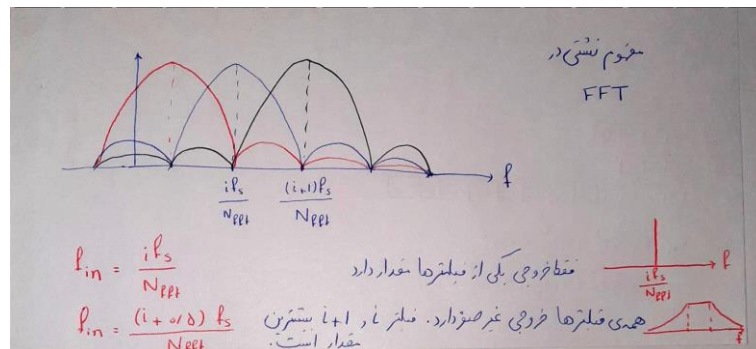 مفهوم نشتی در
FFT
f
if_s / N_fft
(i+1)f_s / N_fft
f_in = if_s / N_fft
فقط خروجی یکی از فیلترها مقدار دارد
f
if_s / N_fft
f_in = (i+۰/۵) f_s / N_fft
همه‌ی فیلترها خروجی غیر صفر دارد. فیلتر i و i+1 بیشترین
مقدار است.
f